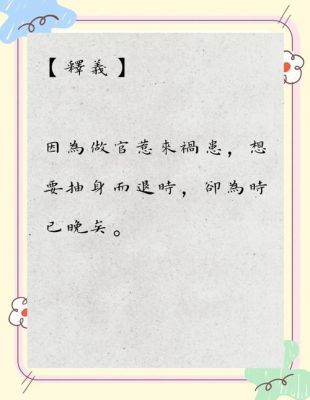 【釋義】
因為做官惹來禍患，想
要抽身而退時，卻為時
已晚矣。